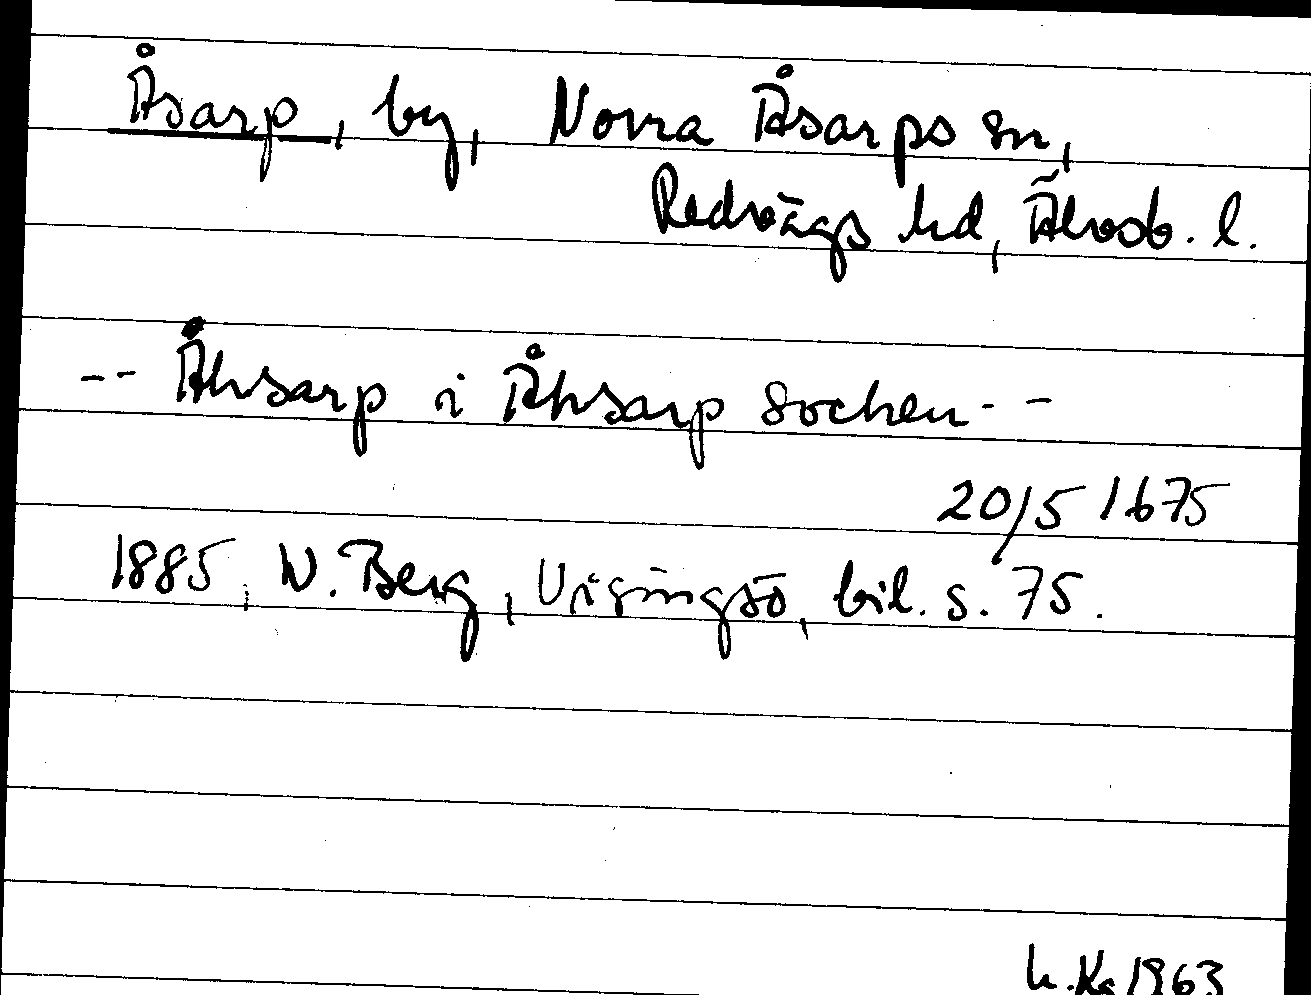 Åsarp, by, Norra Åsarps sn,
Redvägs hd, Älvsb. l.
-- Åhsarp i Åhsarp sochen --
20/5 1675
1885, W. Berg, Visingsö, bil. s. 75.
1963